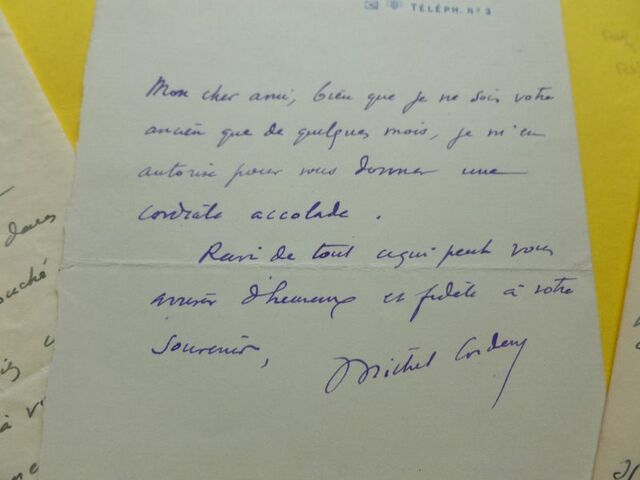 TÉLÉPH. Nº 3
Mon cher ami, bien que je ne sois votre
ancien que de quelques mois, je m'en
autorise pour vous donner une
cordiale accolade.
Ravi de tout ce qui peut vous
arriver d'heureux et fidèle à votre
souvenir,
Michel Corday
dans
ouché
à v